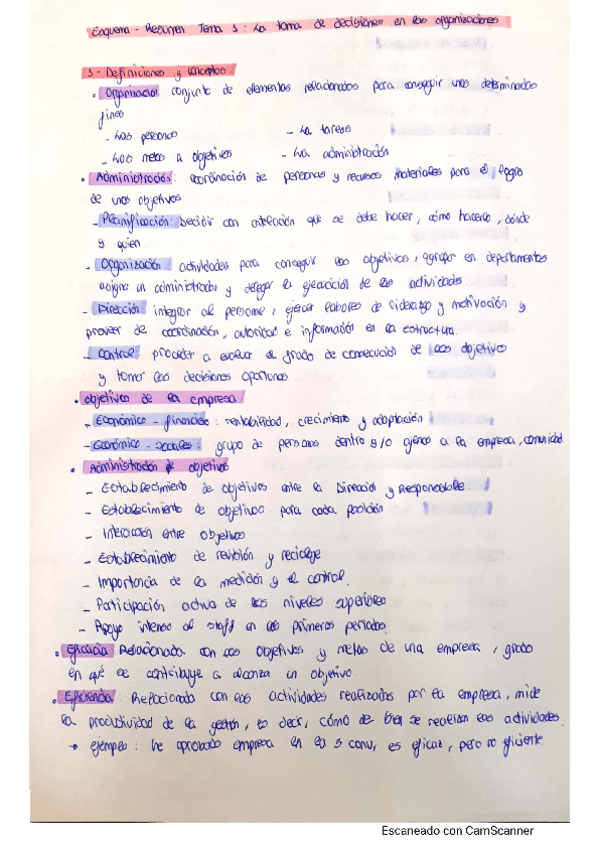 Esquema - Resumen Tema 1: La toma de decisiones en las organizaciones
1.- Definiciones y conceptos
• Organización: conjunto de elementos relacionados para conseguir unos determinados
fines
- Las personas - La tareas
- Las metas u objetivos - La administración
• Administración: coordinación de personas y recursos materiales para el logro
de unos objetivos
- Planificación: Decidir con antelación qué se debe hacer, cómo hacerlo, dónde
y quien.
- Organización: actividades para conseguir los objetivos, agrupar en departamentos
asignar un administrador y delegar la ejecución de las actividades.
- Dirección: integrar al personal, ejercer labores de liderazgo y motivación y
proveer de coordinación, autoridad e información en la estructura.
- Control: proceder a evaluar el grado de consecución de los objetivos
y tomar las decisiones oportunas.
• Objetivos de la empresa
- Económico - financiero: rentabilidad, crecimiento y adaptación
- Económico - sociales: grupo de personas dentro y/o ajenos a la empresa, comunidad.
• Administración de objetivos
- Establecimiento de objetivos entre la Dirección y Responsable.
- Establecimiento de objetivos para cada posición
- Interacción entre objetivos
- Establecimiento de revisión y reciclaje
- Importancia de la medición y el control.
- Participación activa de los niveles superiores
- Apoyo intenso al staff en los primeros periodos.
• Eficacia: Relacionada con los objetivos y metas de una empresa, grado
en qué se contribuye a alcanzar un objetivo.
• Eficiencia: Relacionada con las actividades realizadas por la empresa, mide
la productividad de la gestión, es decir, cómo de bien se realizan las actividades.
→ ejemplo: he aprobado empresa en la 5 conv, es eficaz, pero no eficiente.
Escaneado con CamScanner